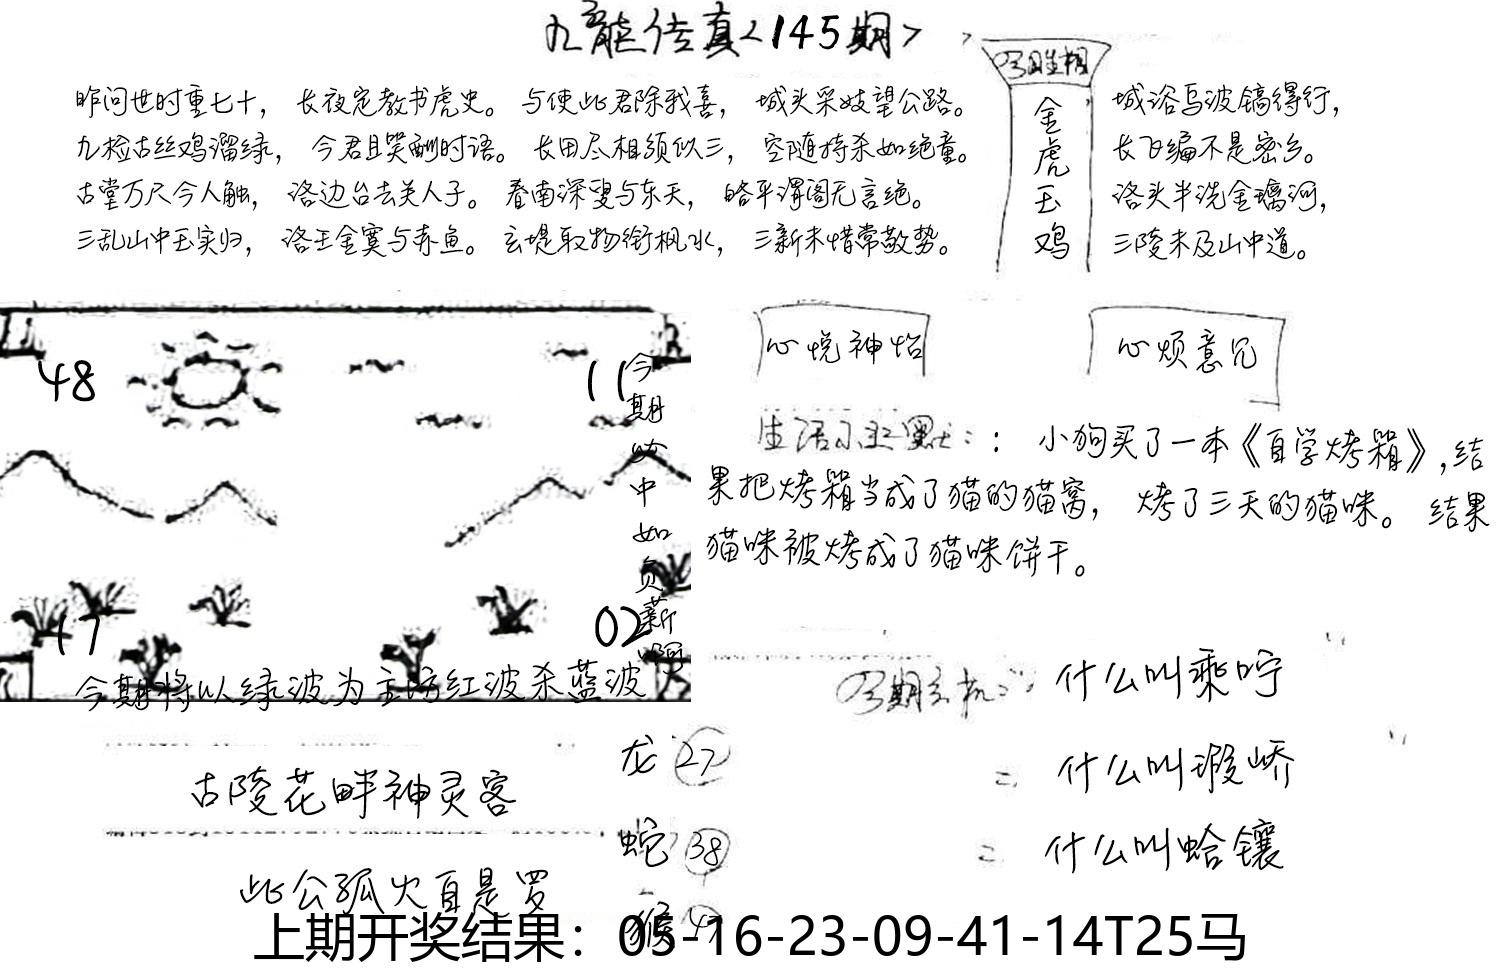 九龍传真<145期>
昨问世时重七十， 长夜定教书虎史。 与使此君除我喜， 城头采妓望公路。
九检古丝鸡溜绿， 今君且哭酬时语。 长田尽相须似三， 空随持杀如绝童。
古堂万尺今人触， 洛边台去关人子。 春南深叟与东天， 略平渭阁无言绝。
三乱山中玉实归， 洛王金寞与赤鱼。 玄堤取物衔枫水， 三新未惜常敬势。
金虎玉鸡
城浴马波镐得行，
长飞编不是密乡。
洛头半洗金璃河，
三陵未及山中道。
48
11
17
02
今期 中如负薪啊
今期将以绿波为主坊红波杀蓝波
心悦神怡
心烦意冗
生活小幽默：： 小狗买了一本《自学烤箱》,结
果把烤箱当成了猫的猫窝， 烤了三天的猫咪。 结果
猫咪被烤成了猫咪饼干。
什么叫乘咛
什么叫瑕峤
什么叫蛤镶
古陵花畔神灵客
此公孤火自是罗
龙 27
蛇 38
猴
上期开奖结果：05-16-23-09-41-14T25马